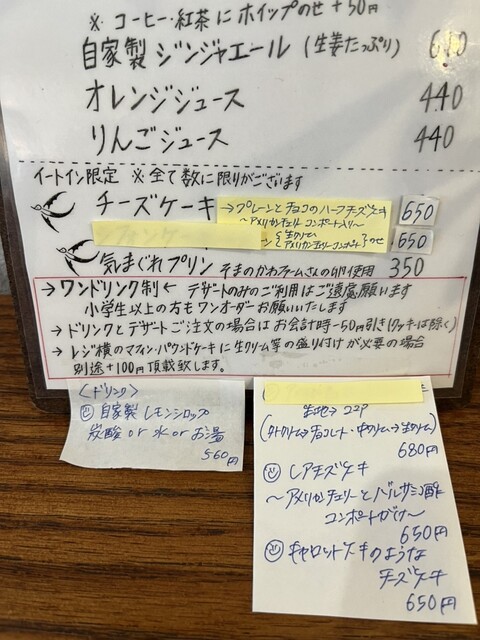 ※ コーヒー・紅茶にホイップのせ +50円
自家製ジンジャエール (生姜たっぷり) 610
オレンジジュース 440
りんごジュース 440
イートイン限定 ※全て数に限りがございます
チーズケーキ →プレーンとチョコのハーフチーズケーキ 650
〜アメリカンチェリーコンポート入り〜
{生クリーム
アメリカンチェリーコンポート}のせ 650
気まぐれプリン そまのかわファームさんの卵使用 350
→ ワンドリンク制 ← デザートのみのご利用はご遠慮願います
小学生以上の方もワンオーダーお願いいたします
→ ドリンクとデザートご注文の場合はお会計時-50円引き(クッキーは除く)
→ レジ横のマフィン・パウンドケーキに生クリーム等の盛り付けが必要の場合
別途+100円頂戴致します。
〈ドリンク〉
自家製レモンシロップ
炭酸 or 水 or お湯
560円
生地→ココア
(外クリーム→チョコレート・中クリーム→生クリーム)
680円
レアチーズケーキ
〜アメリカンチェリーとバルサミコ酢
コンポートがけ〜
650円
キャロットケーキのような
チーズケーキ
650円